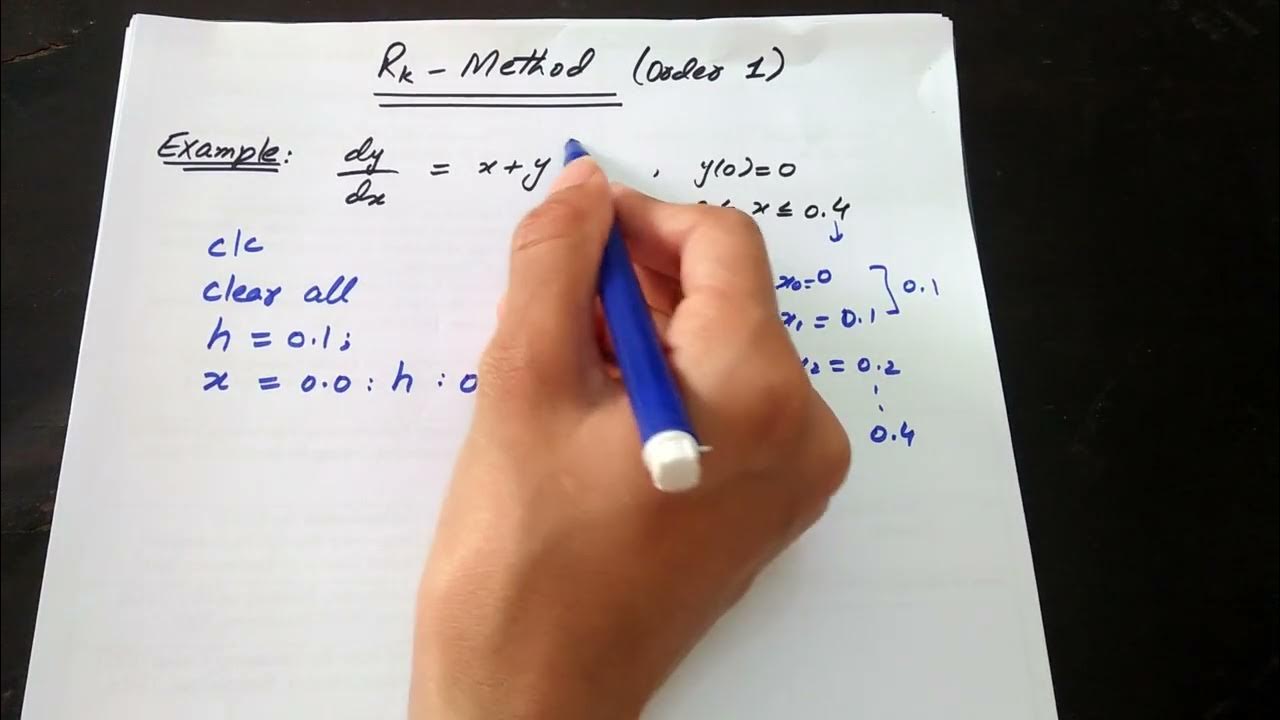 Rk - Method (Order 1)
Example: dy/dx = x + y , y(0) = 0
x ≤ 0.4
clc
clear all
h = 0.1;
x = 0.0 : h : 0
x0 = 0
0.1
x1 = 0.1
x2 = 0.2
0.4